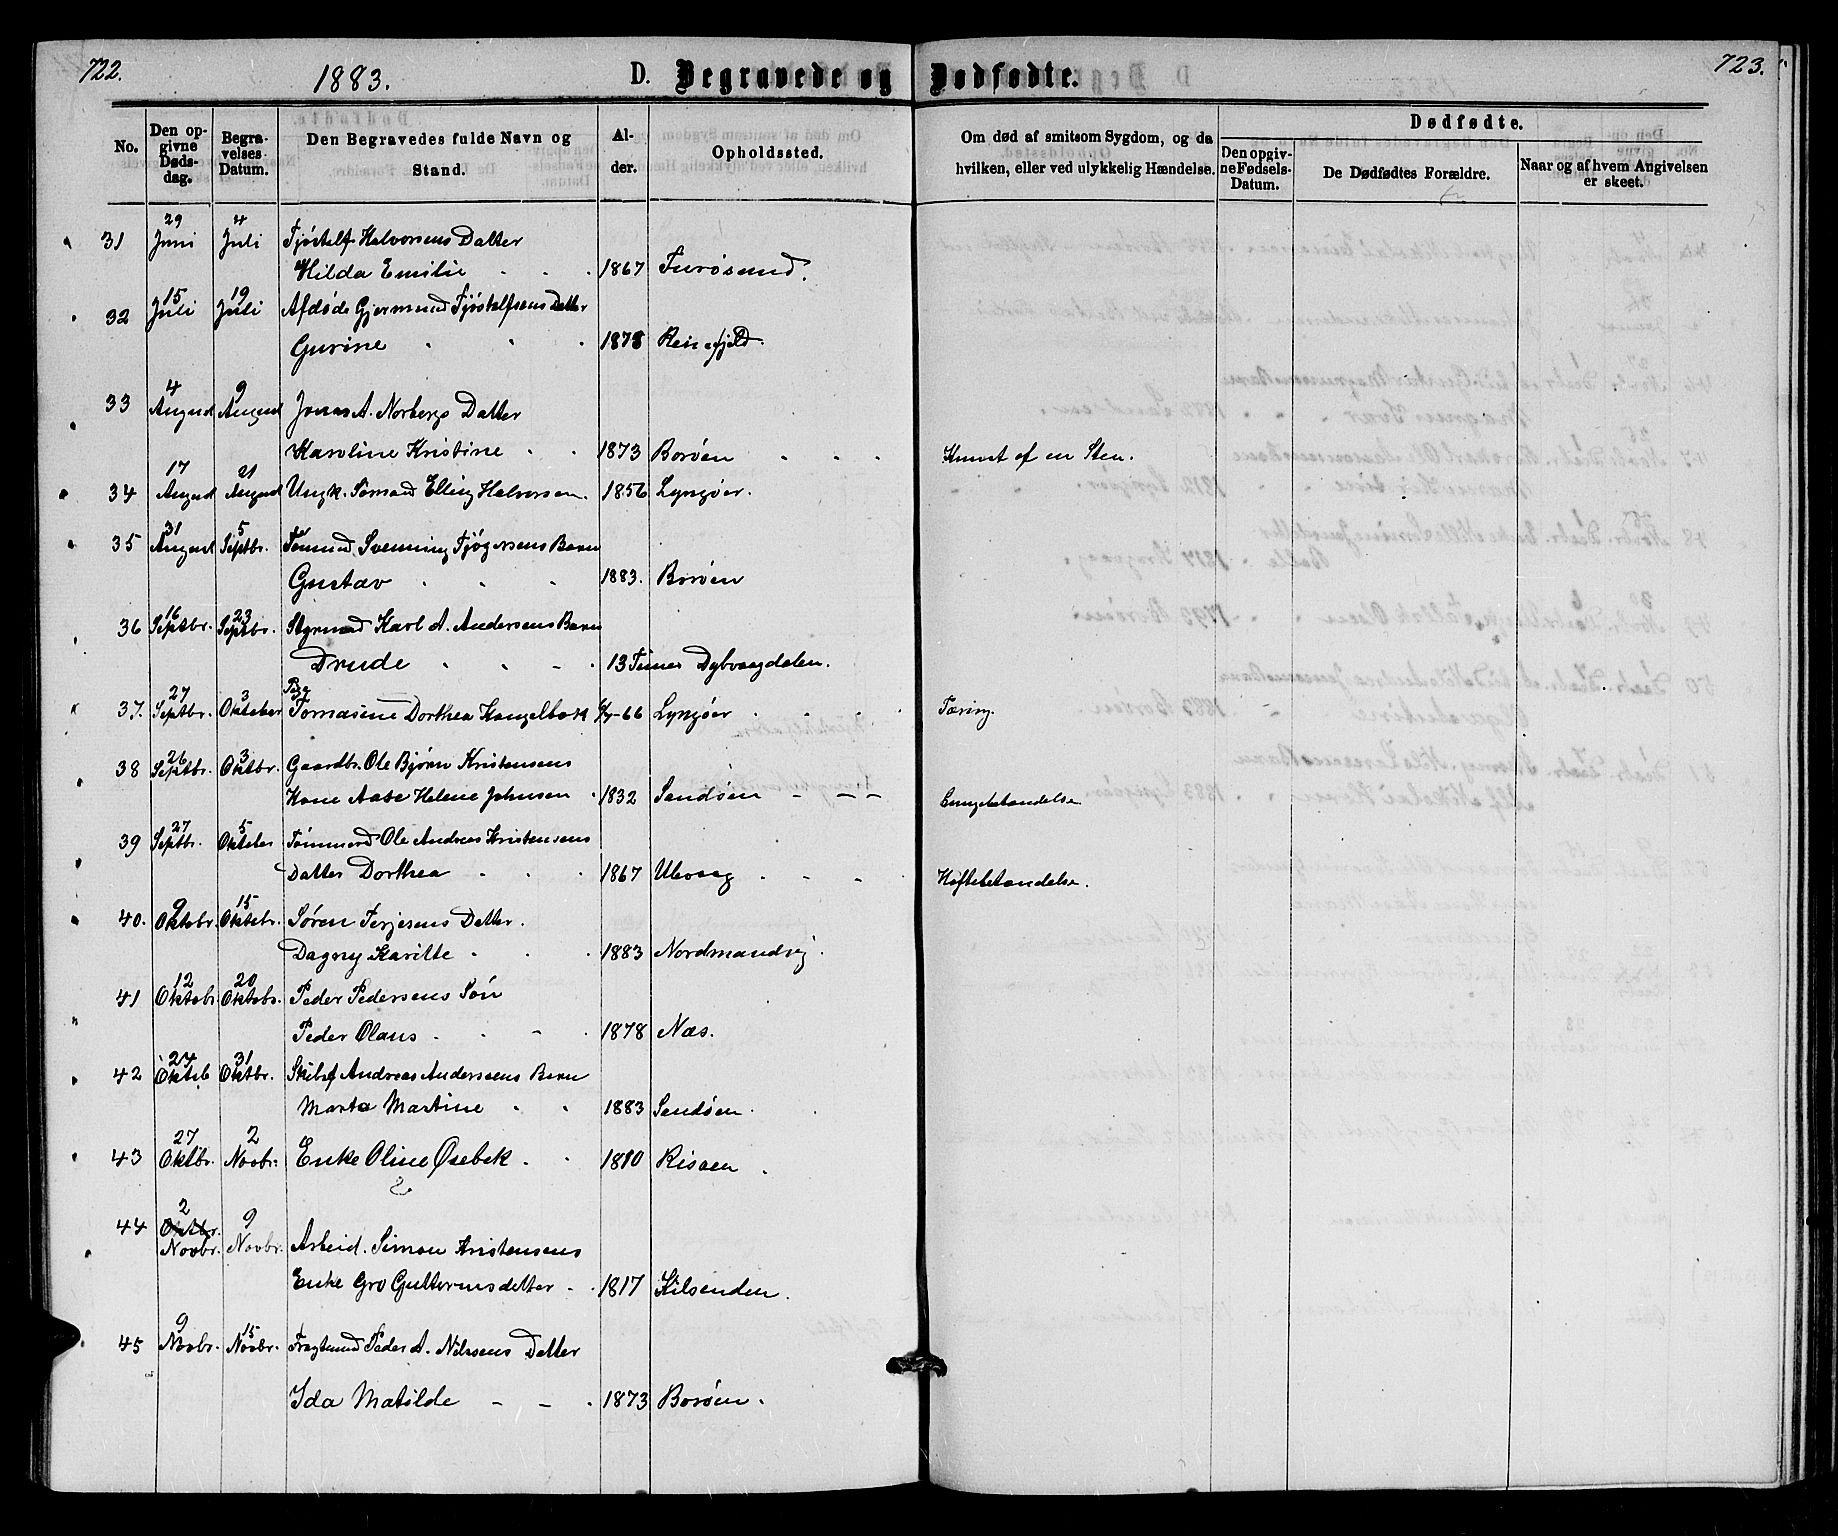 722.
1883.
D. Begravede og Dødfødte.
723.
No.
Den opgivne Dødsdag.
Begravelses-Datum.
Den Begravedes fulde Navn og Stand.
Alder.
Opholdssted.
Om død af smitsom Sygdom, og da hvilken, eller ved ulykkelig Hændelse.
Dødfødte.
Den opgivne Fødsels-Datum.
De Dødfødtes Forældre.
Naar og af hvem Angivelsen er skeet.
31 29 Juni 4 Juli Tjøstelf Halvorsens Datter
Hilda Emilie 1867 Furøsund.
32 15 Juli 19 Juli Afdøde Gjermund Tjøstelfsens Datter
Gurine 1878 Reinefjeld.
33 4 August 9 August Jonas A. Norbergs Datter
Karoline Kristine 1873 Borøen Knust af en Sten.
34 17 August 21 August Ungk. Sømand Elling Halvorsen 1856 Lyngøer.
35 31 August 5 Septbr. Tømmd. Svenning Tjøgersens Barn
Gustav 1883. Borøen
36 16 Septbr. 23 Septbr. Styrmand Karl A. Andersens Barn
Drude 13 Timer Dybvaagdalen.
37. 27 Septbr. 3 Oktober Pige Tomasine Dorthea Kangelbæk -66 Lyngøer Tæring.
38 26 Septbr. 3 Oktbr. Gaardbr. Ole Bjørn Kristensens
Kone Aase Helene Johnsen 1832 Sandøen Lungebetændelse
39 27 Septbr. 5 Oktober Tømmermd Ole Andreas Kristensens
Datter Dorthea 1867 Ulevaag Hoftebetændelse.
40. 9 Oktobr. 15 Oktobr. Søren Terjesens Datter.
Dagny Karitte 1883 Nordmandvig.
41 12 Oktobr. 20 Oktobr. Peder Pedersens Søn
Peder Olaus 1878 Næs.
42 24 Oktob 31 Oktbr. Skibsf Andreas Andersens Barn
Marta Martine 1883 Sandøen.
43 27 Oktbr. 2 Novbr. Enke Oline Øsebek 1810 Risøen
44 2 Oktbr. Novbr. 9 Novbr. Arbeid. Simon Kristensens
Enke Gro Guttormsdatter 1817 Kilsenden.
45 9 Novbr. 15 Novbr. Fragtemd Peder A. Nilsens Datter
Ida Matilde 1873 Borøen.